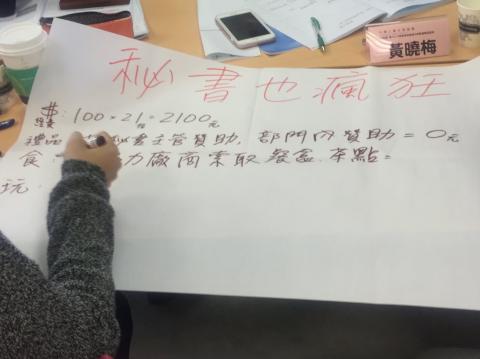 秘書也瘋狂
黃曉梅
費 100×21=2100元
禮品 秘書主管贊助, 部門內贊助=0元
食: 力廠商索取餐盒.茶點=
玩.